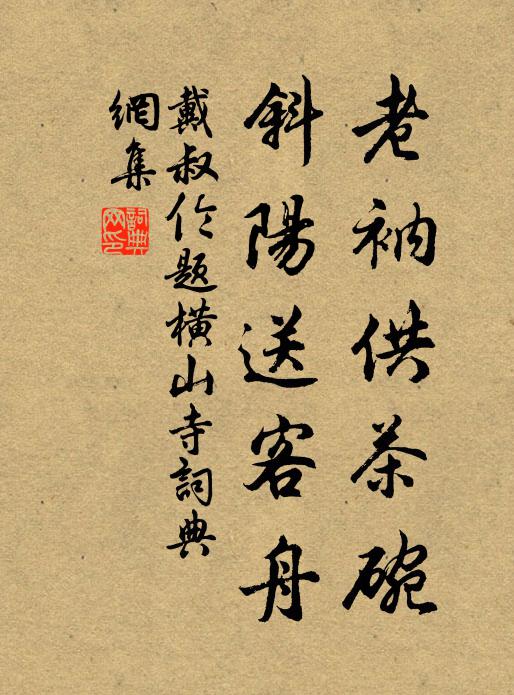 老衲供茶碗
斜陽送客舟
戴叔伦題橫山寺詞典
網集
詞典網印